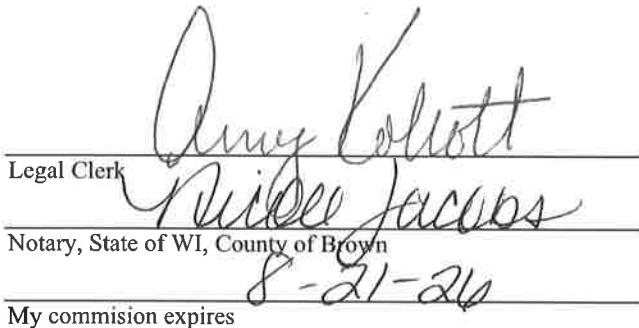 Amy Kokott
Legal Clerk
Nicole Jacobs
Notary, State of WI, County of Brown
8-21-26
My commision expires